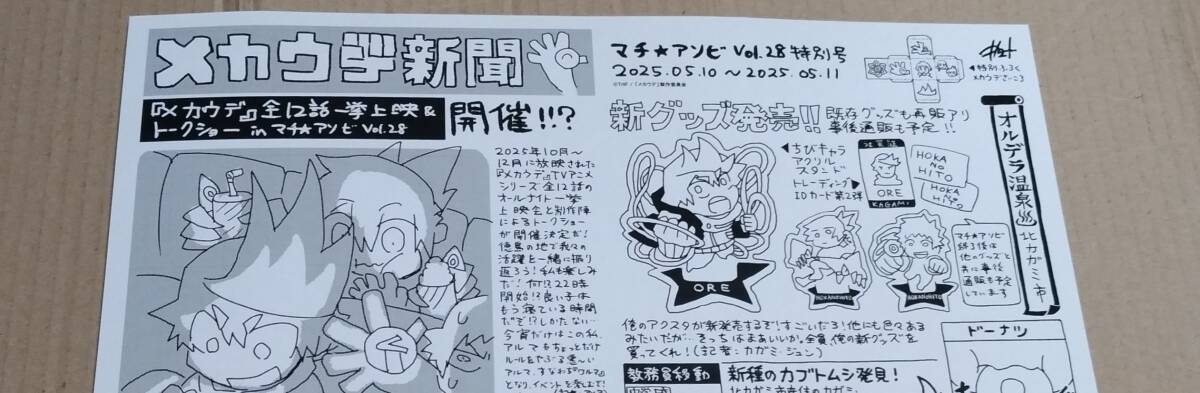 メカウデ新聞
マチ★アソビ Vol.28 特別号
2025.05.10～2025.05.11
©TriF／「メカウデ」製作委員会
『メカウデ』全12話一挙上映&
トークショー in マチ★アソビ Vol.28
開催!!?
2025年10月～
12月に放映された
『メカウデ』TVアニメ
シリーズ全12話の
オールナイト一挙
上映会と制作陣
によるトークショー
が開催決定だ!
徳島の地で我々の
活躍を一緒に振り
返ろう!私も楽しみ
だ!何!?22時
開始!?良い子は
もう寝ている時間
だぞ!?しかたない…
今宵だけはこの私
アルマもちょっとだけ
ルールをやぶる悪〜い
アルマ、すなわち『ワルマ』
となり、イベントを楽しむぞ!
新グッズ発売!!
既存グッズも再販アリ
事後通販も予定!!
◀ちびキャラ
アクリル
スタンド
トレーディング▶
IDカード第2弾
ORE
KAGAMI
HOKA
NO
HITO
HOKA
NO
HITO
ORE
HOKANOHITO
HOKANOHITO
マチ★アソビ
終了後は
他のグッズと
共に事後
通販も予定
しています
俺のアクスタが新発売するぞ!すごいだろ!他にも色々ある
みたいだが…そっちはまあいいか。全員、俺の新グッズを
買ってくれ!(記者:カガミ・ジュン)
◀特別ふろく
メカウデさいころ
オルデラ温泉♨
北カガミ市
ドーナツ
教務員移動
新種のカブトムシ発見!